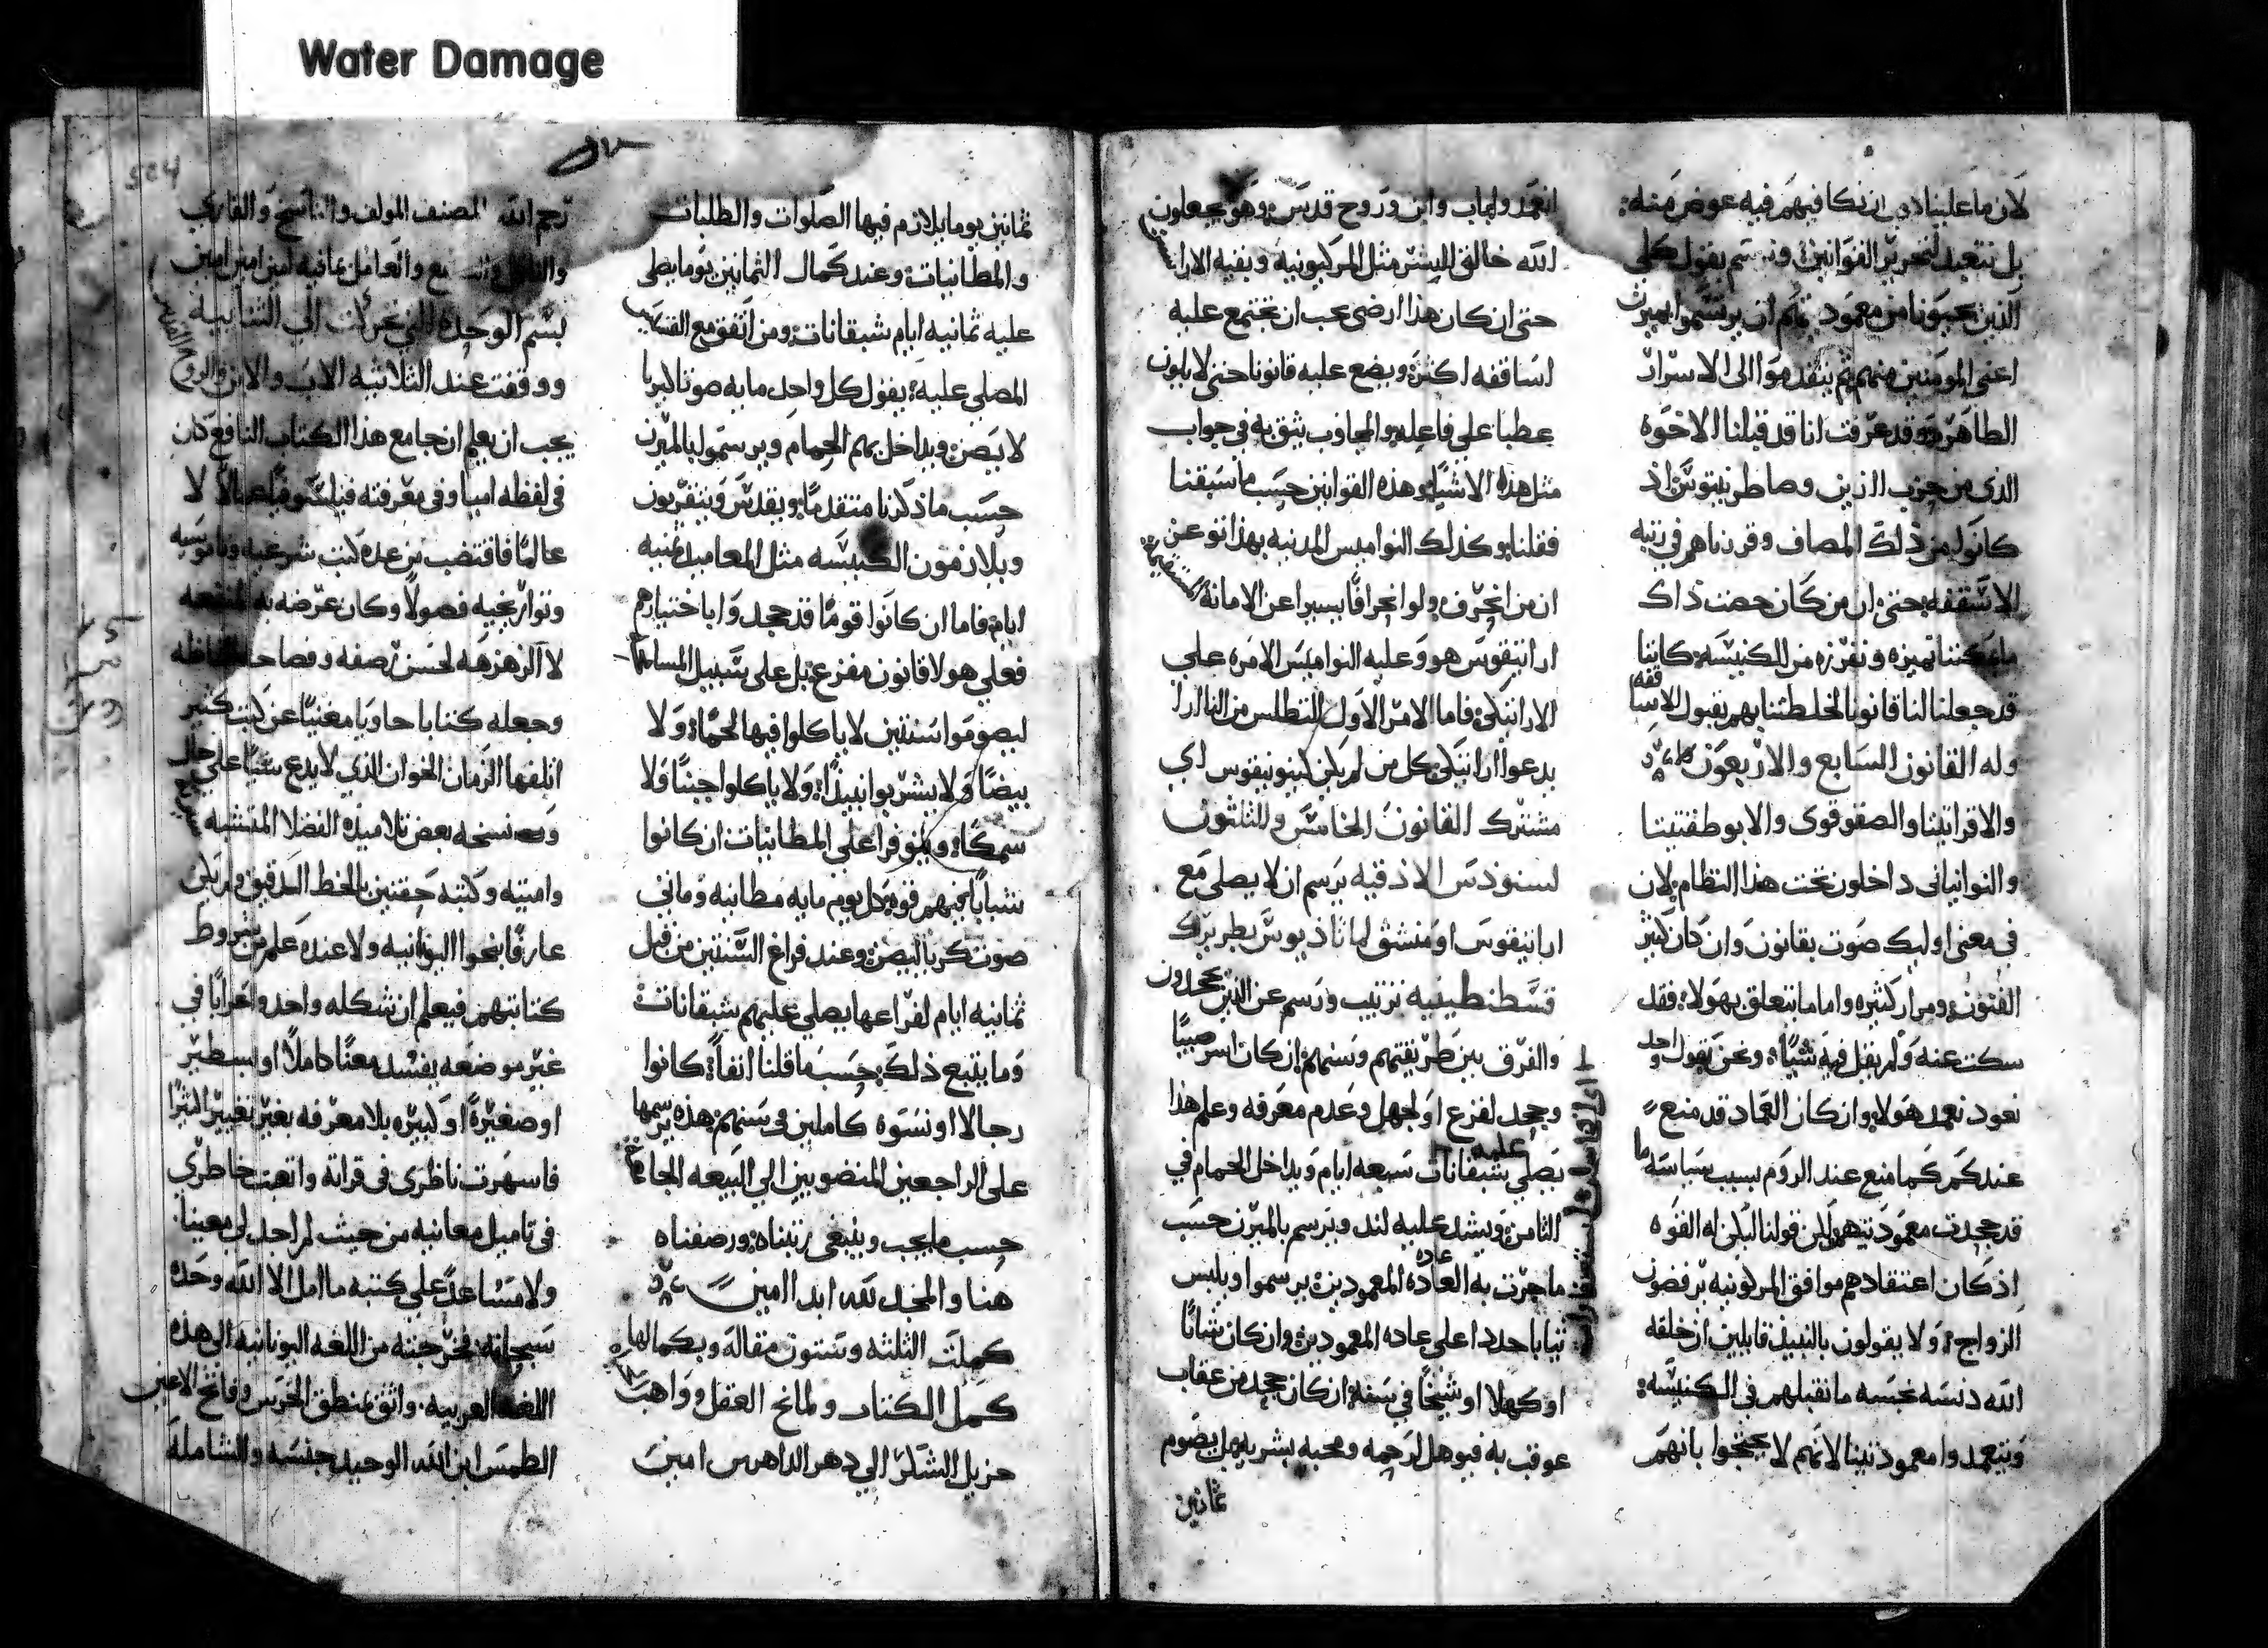 Water Damage
لان ما علينا دين ان نكافيهم فيه عوض منه:
بل نتعبد لتحرير القوانين نقول كلي
الذين يحبونا من معمود ثم ان يرتسموا بميرن
اعني المومنين منهم ثم يتقدموا الى الاسرار
الطاهره وقد عرفت انا قد قبلنا الاخوه
الذي من حزب الزين وصاطرنينوس اذ
كانوا من ذلك المصاف وقرناهم في رتبة
الاسقفه حتى ان من كان حصت ذاك
ما يمكننا تميزه ونفرزه من الكنيسه كاننا
قد جعلنا لنا قانونا لخلطتنا بهم بقبول الاساقفه
وله القانون السابع والاربعون
والاقراتيتا والصقوقوى والابوطقتيتا
والنوانياني داخلون تحت هذا النظام لان
في معنى اوليك صوت بقانون وان كان كثير
الفنون ومرار كثيره واما ما يتعلق بهولا فقد
سكت عنه ولم يقبل فيه شيا ونحن بقول واحد
نعود نعمد هولا وان كان العماد قد منع
عندكم كما منع عند الروم بسبب سياسه ما
قد جحدت معموديتهم لكن قولنا لتكن له القوه
اذ كان اعتقادهم موافق المركونيه يرفضون
الزواج ولا يقولون بالنبيذ قايلين ان خلقه
الله دنسه نجسه ما نقبلهم في الكنيسه:
ويتعمدوا معموديتنا لانهم لا يحتجوا بانهم
انعمدوا باب وابن وروح قدس وهو يجعلون
الله خالق الشر مثل المركيونيه وبقيه الاراسيس
حتى ان كان هذا ارضى يجب ان تجتمع عليه
اساقفه اكثر ويضع عليه قانونا حتى لا يكون
عطبا على فاعله والمجاوب يثق به في جواب
مثل هذه الاشيا وهذه القوانين حسب ما سبقنا
فقلنا وكذلك النواميس المدنيه بهذا تو عن
ان من انحرف ولو انحرافا يسيرا عن الامانه المستقيمه
اراتيقوس هو وعليه النواميس الامره على
الاراتيكي فاما الامر الاول التطلس من الناارا
يدعوا اراتيكي كل من لم يكن كينونيقوس اي
مشترك القانون الخامس والثلثون
لسنودس الاذقيه يرسم ان لا يصلى مع
اراتيقوس او منشق لماثاذيوس بطريرك
قسطنطينيه ترتيب ورسم عن الذين يجحدون
والفرق بين طريقتهم وسنهم ان كان اسر صبيا
وجحد لفزع او لجهل وعدم معرفه وعلم هذا
يصلي عليه شبقانات سبعه ايام ويداخل الحمام في
الثامن ويشد عليه لند ويرسم بالميرن حسب
ما جرت به العاده المعموديه يرسموا ويلبس
ثيابا جددا على عاده المعموديه وان كان شابا
او كهلا او شيخا في سنه ان كان جحد من عقاب
عوقب به فيوهل لرحمه ومحبه بشريه بل يصوم
ثمانين
ثمانين يوما يلازم فيها الصلوات والطلبات
والمطانيات وعند كمال الثمانين يوما يصلى
عليه ثمانيه ايام شبقانات ومن اتفق مع القسيس
المصلي عليه يقول كل واحد مايه صوت كيريا
لايصن ويداخل بهم الحمام ويرسمو بالميرن
حسب ما ذكرنا متقدما ويقدس ويتقربون
ويلازمون الكنيسه مثل المعاميد ثمنيه
ايام فاما ان كانوا قوما قد جحدوا باختيارهم
فعلى هولا قانون مفزع بل على سبيل المسامحه
ليصوموا سنتين لا ياكلوا فيها لحما ولا
بيضا ولا يشربوا نبيذا ولا ياكلوا جبنا ولا
سمكا ويتوفرا على المطانيات ان كانوا
شبابا فيهم قوه كل يوم مايه مطانيه ومايتي
صوت كريا ليصن وعند فراغ السنتين من قبل
ثمانيه ايام لفراغها يصلي عليهم شبقانات
وما يتبع ذلك حسب ما قلنا انفا كانوا
رجالا او نسوه كاملين في سنهم هذه رسمها
على الراجعين المنضويين الى البيعه الجامعه
حسب ما يجب وينبغي رتبناه ورصفناه
هنا والمجد لله ابدا امين
كملت الثلثه وستون مقاله وبكمالها
كمل الكتاب ولمانح العقل وواهب
جزيل الشكر الى دهر الداهرين امين
524
رحم الله المصنف المولف والناسخ والقارى
والعامل بمافيه امين امين امين
بسم الوحده التي تحركت الى الثنائيه
ووقفت عند الثلاثيه الاب والابن والروح القدس
يجب ان يعلم ان جامع هذا الكتاب النافع كان
في لفظه اميا وفي معرفته لا
عالما فاقتضب من عده كتب شرعيه وناموسيه
وتواريخيه فصولا وكان غرضه به المنفعه
لا الزهزهه لحسن رصفه وفصاحه الفاظه
وجعله كتابا حاويا مغنيا عن كتب كثير
اتلفها الزمان الخوان الذي لا يدع شيا على حال
نسخه بعض تلاميذه الفضلا المتشبه بسيرته
وامنيته وكتبه حقتين بالخط الدقيق ولم يكن
عارفا بنحوا اليونانيه ولا عنده علم من شروط
كتابتهم فيعلم ان شكله واحده واعرابا في
غير موضعه يفسد معنا كاملا او سطير
او صغيره او كبيره بلا معرفه يغير تغييرا كثيرا
فاسهرت ناظري في قراته واتعبت خاطري
في تاميل معانيه من حيث لم اجد لي معينا
ولا مساعدا على كتبه ما امل الا الله وحده
سبحانه فخرجته من اللغه اليونانيه الى هذه
اللغه العربيه واثق بمنطق الخرس وفاتح الاعين
الطمس ابن الله الوحيد جنسه والشامله